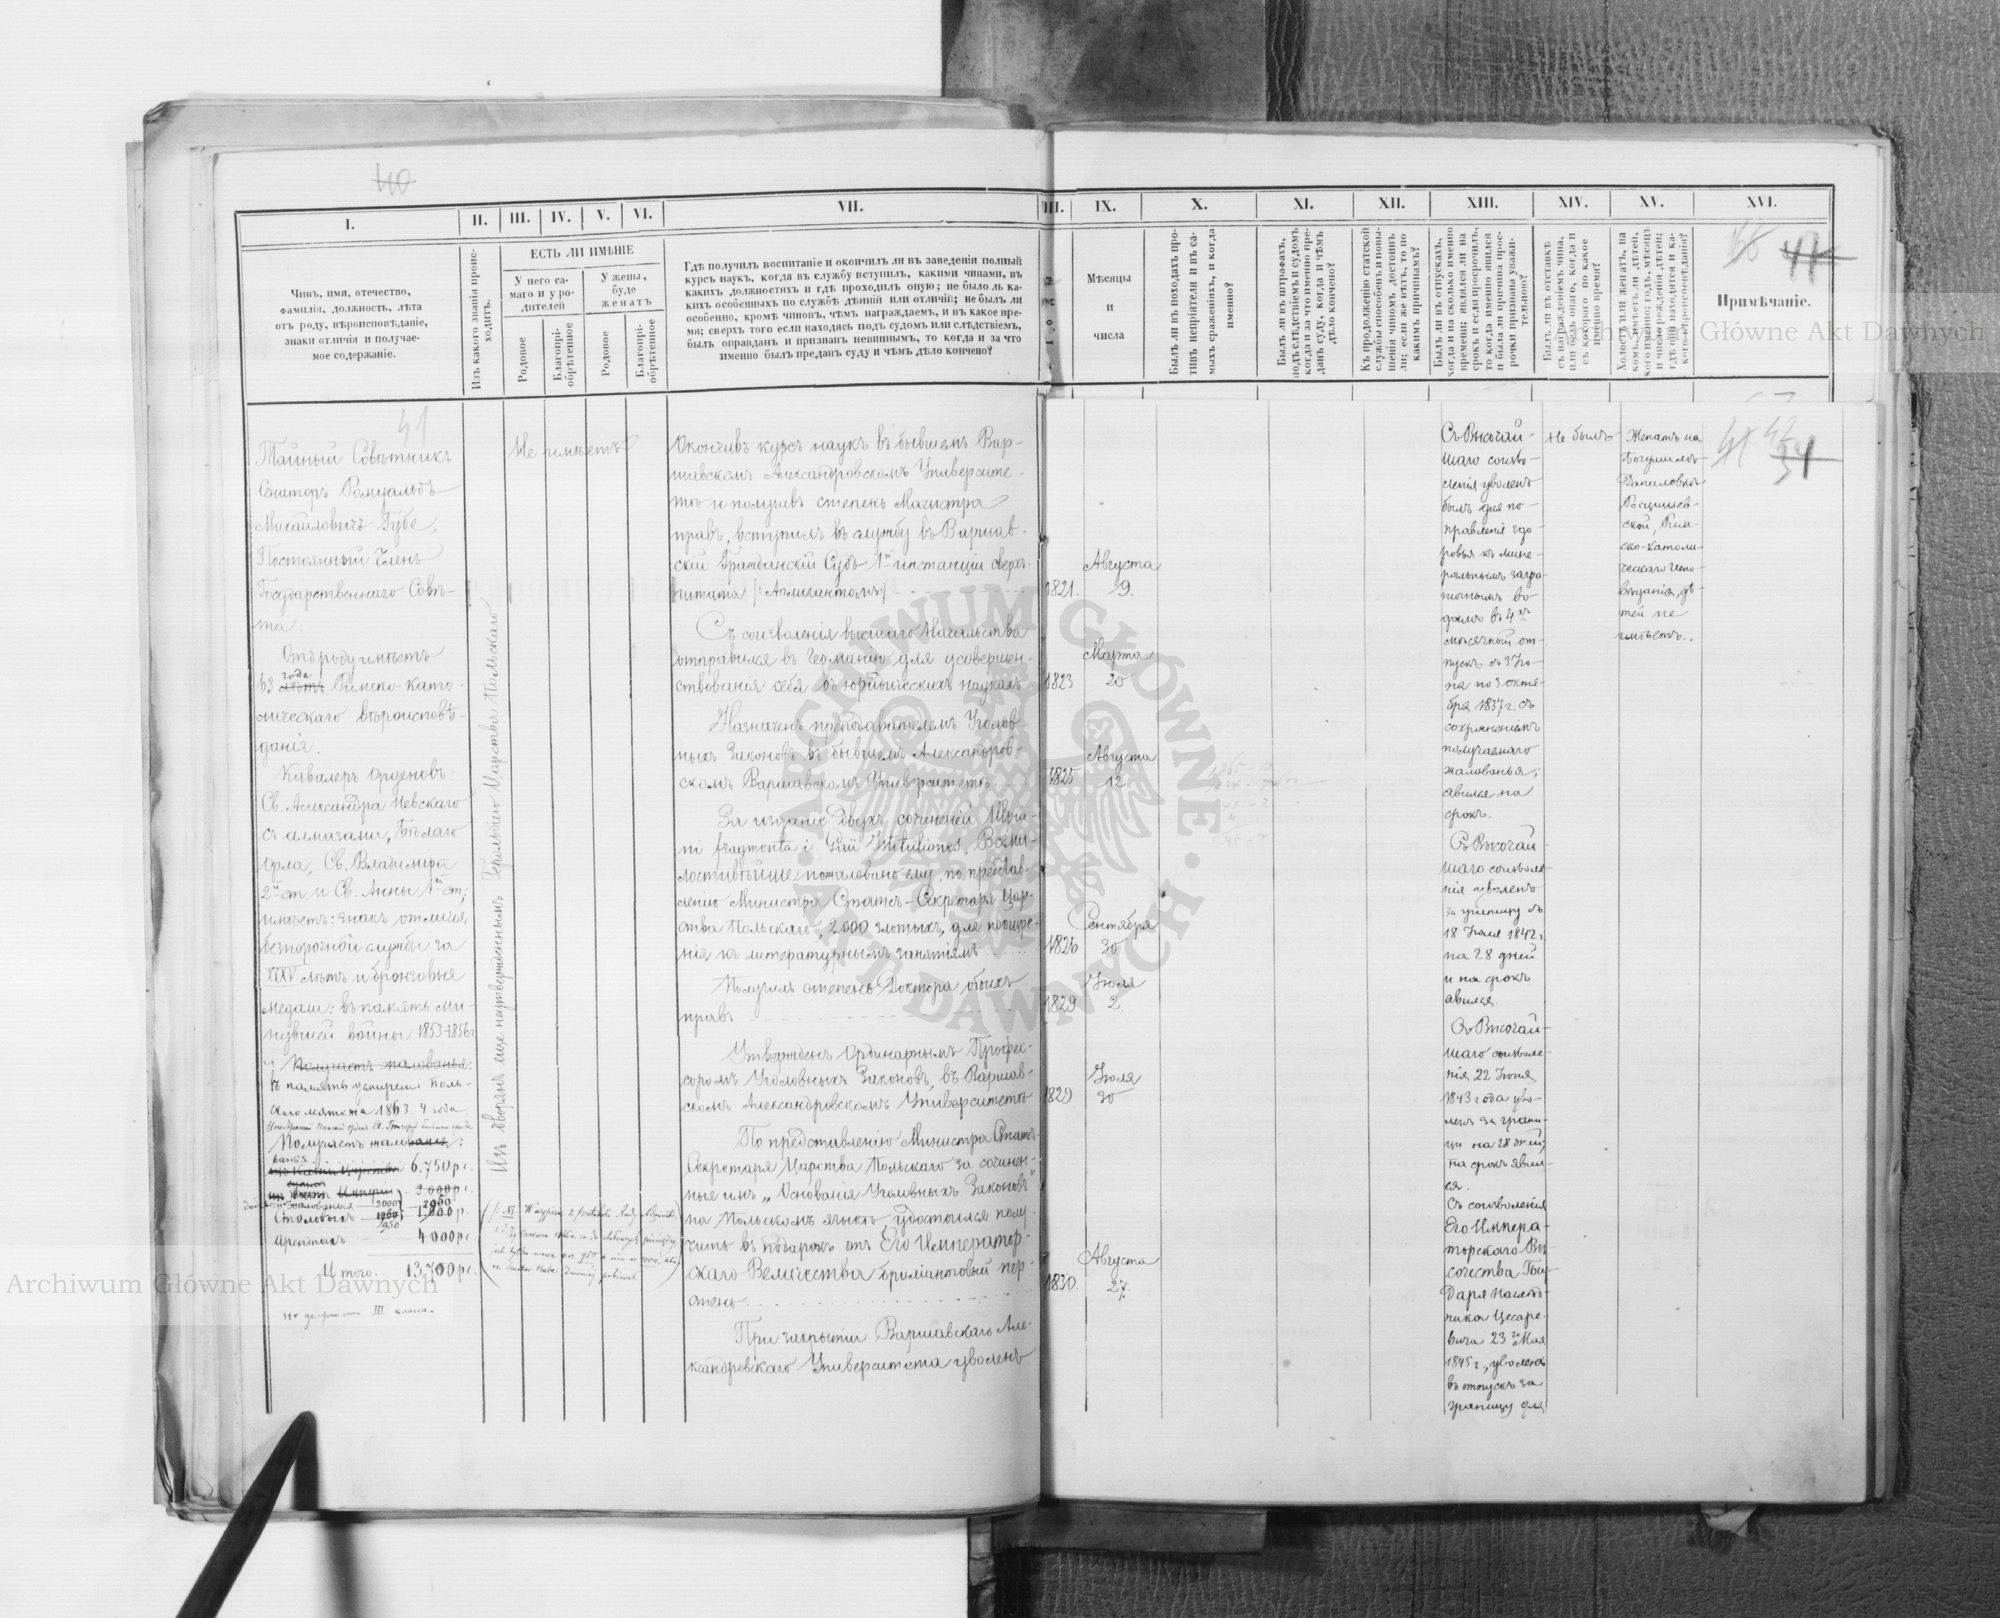 40
I.
II.
III.
IV.
V.
VI.
VII.
III.
IX.
X.
XI.
XII.
XIII.
XIV.
XV.
XVI.
Чинъ, имя, отечество,
фамилія, должность, лѣта
отъ роду, вѣроисповѣданіе,
знаки отличія и получае-
мое содержаніе.
Изъ какого званія проис-
ходитъ.
ЕСТЬ ЛИ ИМѢНІЕ
У него са-
маго и у ро-
дителей
У жены,
буде
женатъ
Родовое
Благопрі-
обрѣтенное
Родовое
Благопрі-
обрѣтенное
Гдѣ получилъ воспитаніе и окончилъ ли въ заведеніи полный
курсъ наукъ, когда въ службу вступилъ, какими чинами, въ
какихъ должностяхъ и гдѣ проходилъ оную; не было ль ка-
кихъ особенныхъ по службѣ дѣяній или отличій; не былъ ли
особенно, кромѣ чиновъ, чѣмъ награждаемъ, и въ какое вре-
мя; сверхъ того если находясь подъ судомъ или слѣдствіемъ,
былъ оправданъ и признанъ невиннымъ, то когда и за что
именно былъ преданъ суду и чѣмъ дѣло кончено?
Мѣсяцы
и
числа
Былъ ли въ походахъ про-
тивъ непріятеля и въ са-
мыхъ сраженіяхъ, и когда
именно?
Былъ ли въ штрафахъ,
подъ слѣдствіемъ и судомъ
когда и за что именно пре-
данъ суду, когда и чѣмъ
дѣло кончено?
Къ продолженію статской
службы способенъ и повы-
шенія чиномъ достоинъ
ли; если же нѣтъ, то по
какимъ причинамъ?
Былъ ли въ отпускахъ,
когда и на сколько именно
времени; явился ли на
срокъ и если просрочилъ,
то когда именно явился
и была ли причина прос-
рочки признана уважи-
тельною?
Былъ ли въ отставкѣ
съ награжденіемъ чина,
или безъ онаго, когда и
съ котораго по какое
именно время?
Холостъ или женатъ, на
комъ, имѣетъ ли дѣтей,
кого именно; годъ, мѣсяцъ
и число рожденія дѣтей;
гдѣ они находятся и ка-
кого вѣроисповѣданія?
Примѣчаніе.
41
Тайный Совѣтникъ
Сенаторъ Ромуальдъ
Михайловичъ Губе,
Постоянный Членъ
Государственнаго Совѣ-
та.
Отъ роду имѣетъ
63 года лѣтъ Римско-като-
лическаго вѣроисповѣ-
данія.
Кавалеръ Орденовъ:
Св. Александра Невскаго
съ алмазами, Бѣлаго
Орла, Св. Владиміра
2й ст. и Св. Анны 1й ст;
имѣетъ: знакъ отличія
безпорочной службы за
XXXV лѣтъ и бронзовыя
медали: въ память ми-
нувшей войны 1853-1856 г
Получаетъ жалованья:
въ память усмиренія Поль-
скаго мятежа 1863. 4 года
Получаетъ жалованья:
6.750 р.
3.000 р.
жалованья 2000
Столовыхъ
Арендныхъ 4.000 р.
Итого 13,700 р.
III класса.
Изъ дворянъ еще неутвержденныхъ Герольдіею Царства Польскаго
Не имѣетъ
Окончивъ курсъ наукъ въ бывшемъ Вар-
шавскомъ Александровскомъ Университе-
тѣ и получивъ степень Магистра
правъ, вступилъ въ службу въ Варшав-
скій Гражданскій Судъ 1й инстанціи сверхъ
штата /: Аппликантомъ :/
1821.
Августа
9.
Съ соизволенія высшаго Начальства
отправился въ Германію для усовершен-
ствованія себя въ юридическихъ наукахъ
1823
Марта
20
Назначенъ преподавателемъ Уголов-
ныхъ Законовъ въ бывшемъ Александров-
скомъ Варшавскомъ Университетѣ
1825
Августа
12
За изданіе двухъ сочиненій Ulpia-
ni fragmenta i Gaii Institutiones, Всеми-
лостивѣйше пожаловано ему, по представ-
ленію Министра Статсъ-Секретаря Цар-
ства Польскаго, 2.000 злотыхъ, для поощре-
нія къ литературнымъ занятіямъ
1826
Сентября
30
Получилъ степень Доктора обоихъ
правъ
1829
Іюля
2
Утвержденъ Ординарнымъ Профес-
соромъ Уголовныхъ Законовъ, въ Варшав-
скомъ Александровскомъ Университетѣ
1829
Іюля
30
По представленію Министра Статсъ-
Секретаря Царства Польскаго за сочинен-
ные имъ „Основанія Уголовныхъ Законовъ"
на Польскомъ языкѣ, удостоился полу-
чить въ подарокъ отъ Его Император-
скаго Величества брилліантовый пер-
стень
1830.
Августа
27.
При закрытіи Варшавскаго Але-
ксандровскаго Университета уволенъ
Съ Высочай-
шаго соизво-
ленія уволенъ
былъ для по-
правленія здо-
ровья къ мине-
ральнымъ загра-
ничнымъ во-
дамъ въ 4хъ
мѣсячный от-
пускъ съ 3 Ію-
ня по 3 октя-
бря 1837 г. съ
сохраненіемъ
получаемаго
жалованья;
явился на
срокъ.
Съ Высочай-
шаго соизволе-
нія уволенъ
за границу съ
18 Іюля 1842 г.
на 28 дней
и на срокъ
явился.
Съ Высочай-
шаго соизволе-
нія 22 Іюня
1843 года уво-
ленъ за грани-
цу на 28 дней,
на срокъ явил-
ся.
Съ соизволенія
Его Импера-
торскаго Вы-
сочества Госу-
даря Наслѣд-
ника Цесаре-
вича 23 го Мая
1845 г., уволенъ
въ отпускъ за
границу для
Не былъ
Женатъ на
Богумилѣ
Даниловнѣ
ской, Рим-
ско-католи-
ческаго испо-
вѣданія, дѣ-
тей не
имѣетъ.
41 42
34
ARCHIWUM GŁÓWNE
AKT DAWNYCH
Archiwum Główne Akt Dawnych
Główne Akt Dawnych